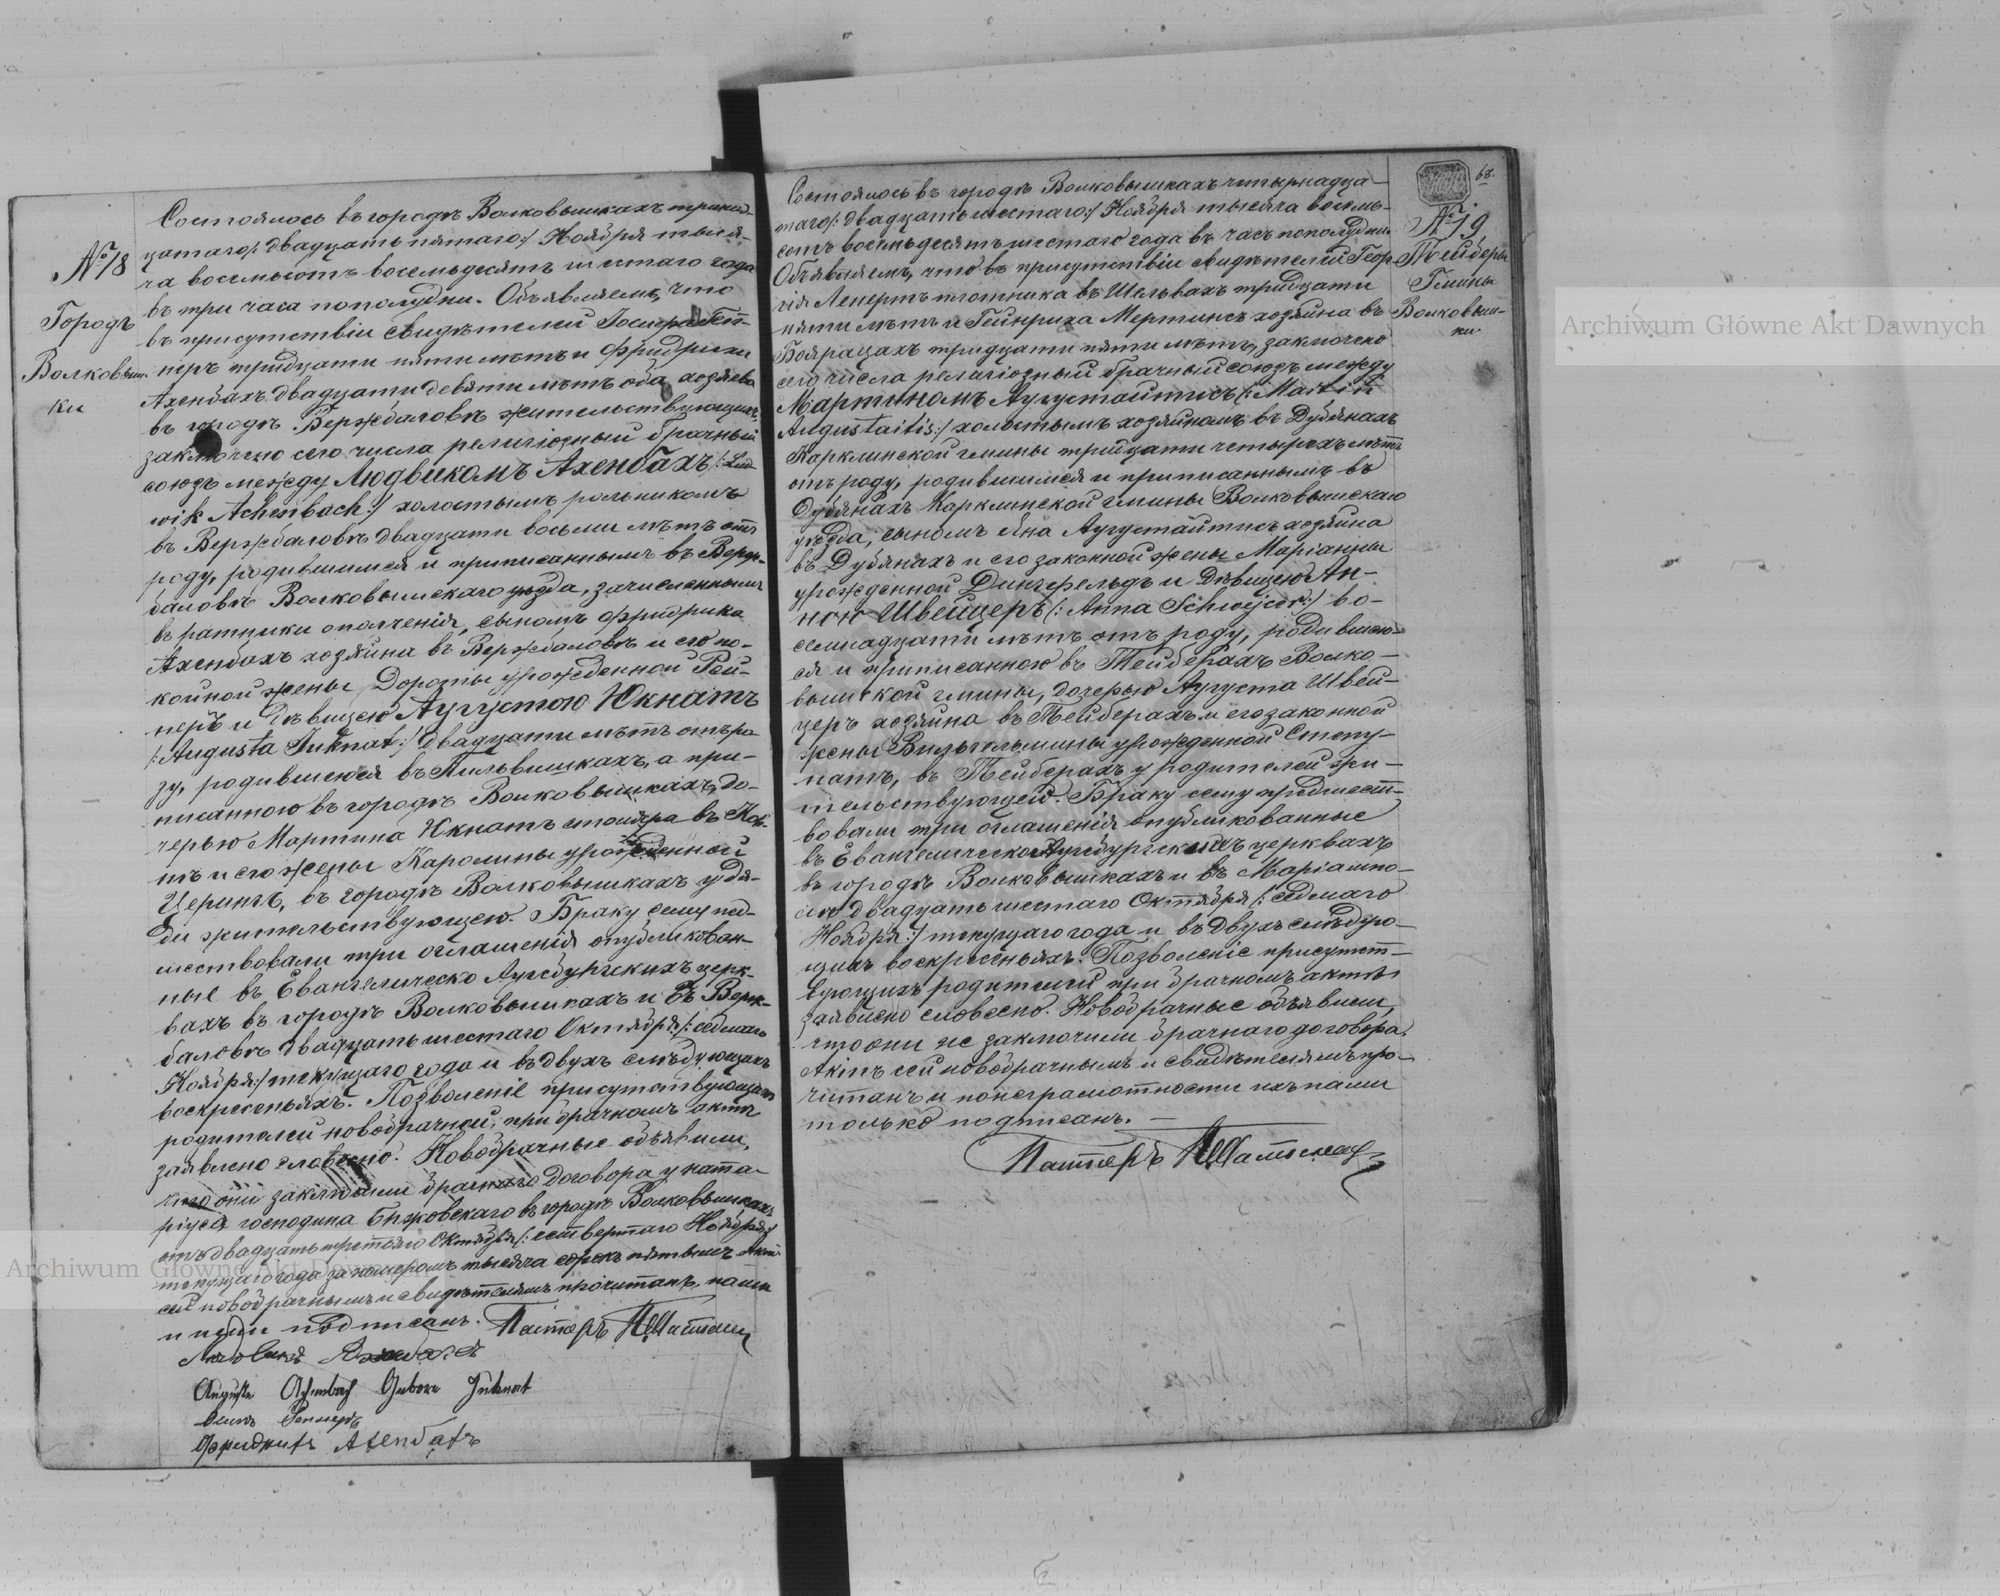 № 78
Городъ
Волковыш-
ки
Состоялось въ городѣ Волковышкахъ тринад-
цатаго /: двадцать пятаго :/ Ноября тыся-
ча восемьсотъ восемьдесятъ шестаго года
въ три часа пополудни. Объявляемъ, что
въ присутствіи свидѣтелей
неръ тридцати пяти лѣтъ и Фридриха
Ахенбахъ двадцати девяти лѣтъ оба хозяева
въ городѣ Вержбаловѣ жительствующихъ,
заключено сего числа религіозный брачный
союзъ между Людвикомъ Ахенбахъ /: Lud-
wik Achenbach :/ холостымъ рольникомъ
въ Вержбаловѣ двадцати восьми лѣтъ отъ
роду, родившимся и приписаннымъ въ Верж-
баловѣ Волковышскаго уѣзда, зачисленнымъ
въ ратники ополченія, сыномъ Фридриха
Ахенбахъ хозяина въ Вержбаловѣ и его по-
койной жены Дороты урожденной Рей-
неръ и дѣвицею Августою Юкнатъ
/: Augusta Juknat :/ двадцати лѣтъ отъ ро
ду, родившеюся въ Пильвишкахъ, а при-
писанною въ городѣ Волковышкахъ, до-
черью Мартина Юкнатъ столяра въ Ков-
нѣ и его жены Каролины урожденной
Церингъ, въ городѣ Волковышкахъ у дя-
ди жительствующею. Браку сему пред-
шествовали три оглашенія опубликован-
ные въ Евангелическо Аугсбургскихъ церк-
вахъ въ городѣ Волковышкахъ и въ Верж-
баловѣ двадцать шестаго Октября /: седьмаго
Ноября :/ текущаго года и въ двухъ слѣдующихъ
воскресеньяхъ. Позволеніе присутствующихъ
родителей новобрачной, при брачномъ актѣ
заявлено словесно. Новобрачные объявили,
что они заключили брачнаго договора у нота-
ріуса господина въ городѣ Волковышкахъ
отъ двадцать третьяго Октября /: четвертаго Ноября :/
текущаго года за номеромъ тысяча сорокъ пятымъ. Актъ
сей новобрачнымъ и свидѣтелямъ прочитанъ, нами
и ими подписанъ. Пасторъ
Людвикъ Ахенбахъ
Auguste Achenbach Geborn Juknat
Фридрихъ Ахенбахъ
68.
№ 79
Тейберы
Гмины
Волковыш-
ки.
Состоялось въ городѣ Волковышкахъ четырнадца-
таго /: двадцать шестаго :/ Ноября тысяча восемь-
сотъ восемьдесятъ шестаго года въ часъ пополудни.
Объявляемъ, что въ присутствіи свидѣтелей Геор-
гія Леперть плотника въ Шельвахъ тридцати
пяти лѣтъ и Гейнриха Мертинсъ хозяина въ
Боярацахъ тридцати пяти лѣтъ, заключено
сего числа религіозный брачный союзъ между
Мартиномъ Аугустайтисъ /: Martin
Augustaitis :/ холостымъ хозяиномъ въ Дубянахъ
Карклинской гмины тридцати четырехъ лѣтъ
отъ роду, родившимся и приписаннымъ въ
Дубянахъ Карклинской гмины Волковышскаго
уѣзда, сыномъ Яна Аугустайтисъ хозяина
въ Дубянахъ и его законной жены Маріанны
урожденной Дингфельдъ и дѣвицею Ан-
ною Швейцеръ /: Anna Schwejcer :/ во-
семнадцати лѣтъ отъ роду, родившею-
ся и приписанною въ Тейберахъ Волко-
вышской гмины, дочерью Августа Швей-
церъ хозяина въ Тейберахъ и его законной
жены Вильгельмины урожденной Степу-
натъ, въ Тейберахъ у родителей жи-
тельствующею. Браку сему предшест-
вовали три оглашенія опубликованные
въ Евангелическо Аугсбургскихъ церквахъ
въ городѣ Волковышкахъ и въ Маріампо-
лѣ двадцать шестаго Октября /: седьмаго
Ноября :/ текущаго года и въ двухъ слѣдую-
щихъ воскресеньяхъ. Позволеніе присутст-
вующихъ родителей при брачномъ актѣ
заявлено словесно. Новобрачные объявили,
что они не заключили брачнаго договора.
Актъ сей новобрачнымъ и свидѣтелямъ про-
читанъ и по неграмотности ихъ нами
только подписанъ. —
Пасторъ
Archiwum Główne Akt Dawnych
Archiwum Główne Akt Dawnych